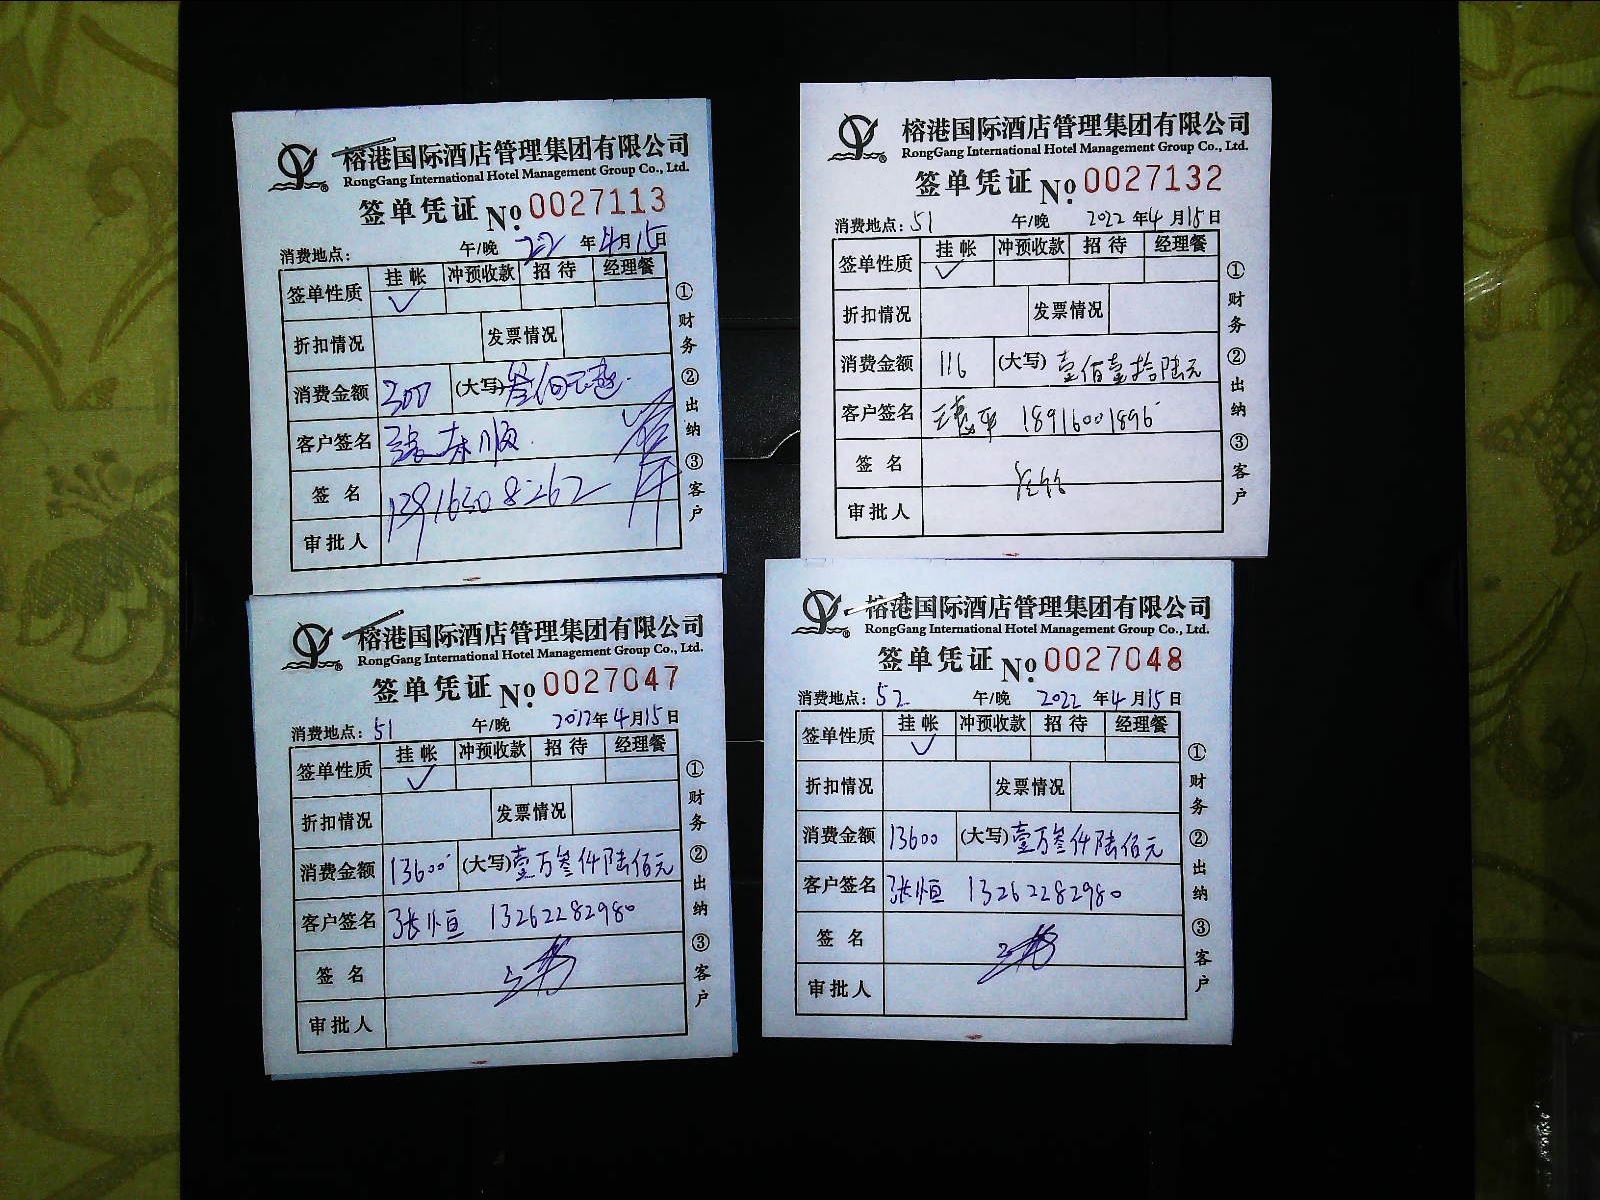 榕港国际酒店管理集团有限公司
RongGang International Hotel Management Group Co., Ltd.
签单凭证 No. 0027113
消费地点: 午/晚 22 年 4 月 15 日
签单性质 挂帐 冲预收款 招待 经理餐
✓
折扣情况 发票情况
消费金额 300 (大写) 叁佰元
客户签名
签名 13916308262
审批人
①财务 ②出纳 ③客户
榕港国际酒店管理集团有限公司
RongGang International Hotel Management Group Co., Ltd.
签单凭证 No. 0027132
消费地点: 51 午/晚 2022 年 4 月 15 日
签单性质 挂帐 冲预收款 招待 经理餐
✓
折扣情况 发票情况
消费金额 116 (大写) 壹佰壹拾陆元
客户签名 18916001896
签名
审批人
①财务 ②出纳 ③客户
榕港国际酒店管理集团有限公司
RongGang International Hotel Management Group Co., Ltd.
签单凭证 No. 0027047
消费地点: 51 午/晚 2022 年 4 月 15 日
签单性质 挂帐 冲预收款 招待 经理餐
✓
折扣情况 发票情况
消费金额 13600 (大写) 壹万叁仟陆佰元
客户签名 张恒 13262282980
签名
审批人
①财务 ②出纳 ③客户
榕港国际酒店管理集团有限公司
RongGang International Hotel Management Group Co., Ltd.
签单凭证 No. 0027048
消费地点: 52 午/晚 2022 年 4 月 15 日
签单性质 挂帐 冲预收款 招待 经理餐
✓
折扣情况 发票情况
消费金额 13600 (大写) 壹万叁仟陆佰元
客户签名 张恒 13262282980
签名
审批人
①财务 ②出纳 ③客户